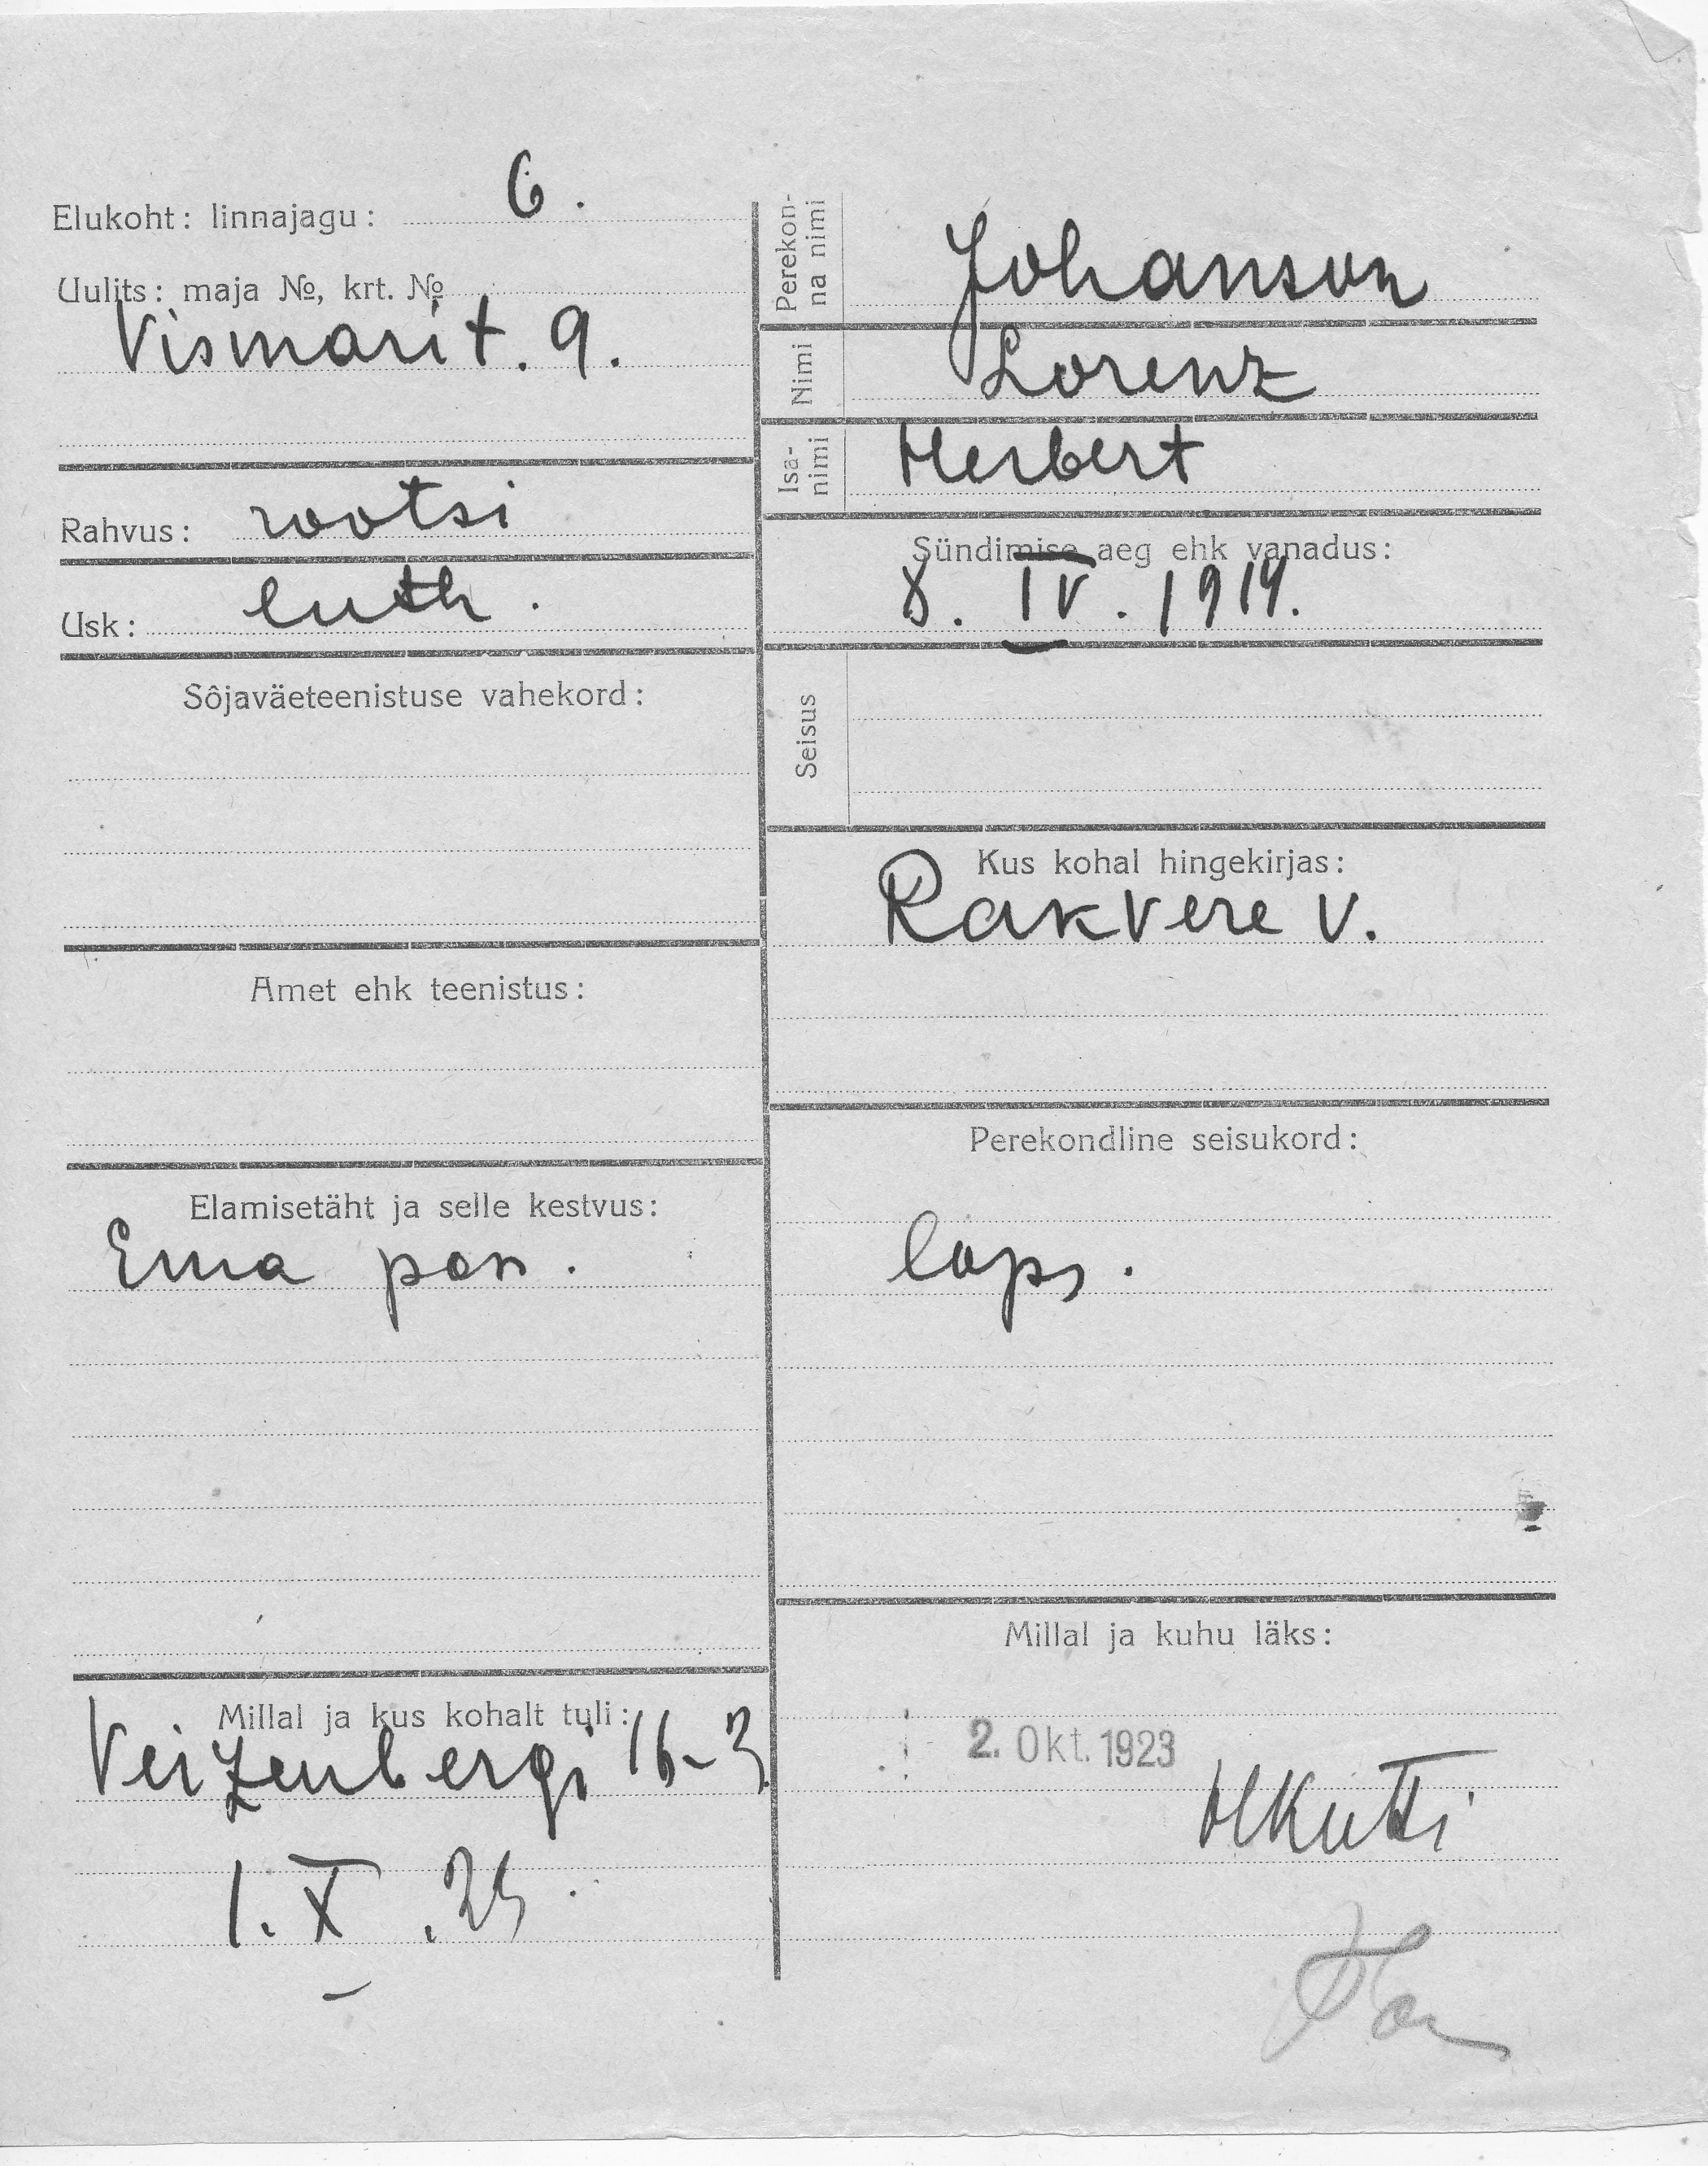 Elukoht: linnajagu: 6.
Uulits: maja №, krt. №
Vismari t. 9.
Rahvus: rootsi
Usk: luth.
Sõjaväeteenistuse vahekord:
Amet ehk teenistus:
Elamisetäht ja selle kestvus:
Ema pas.
Millal ja kus kohalt tuli:
Veizenbergi 16-3
1. X .23
Perekon-
na nimi
Johanson
Nimi
Lorenz
Isa-
nimi
Herbert
Sündimise aeg ehk vanadus:
8. IV. 1919.
Seisus
Kus kohal hingekirjas:
Rakvere v.
Perekondline seisukord:
laps.
Millal ja kuhu läks:
2. Okt. 1923
HKutti